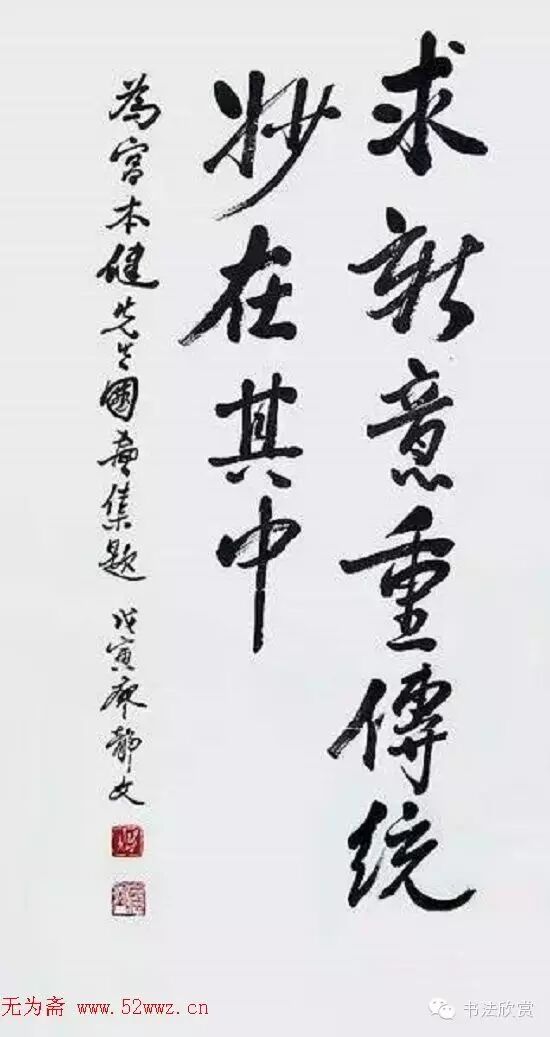 求新意重傳統
妙在其中
為宫本健先生國畫集題
戊寅廖静文
无为斋 www.52wwz.cn
书法欣赏